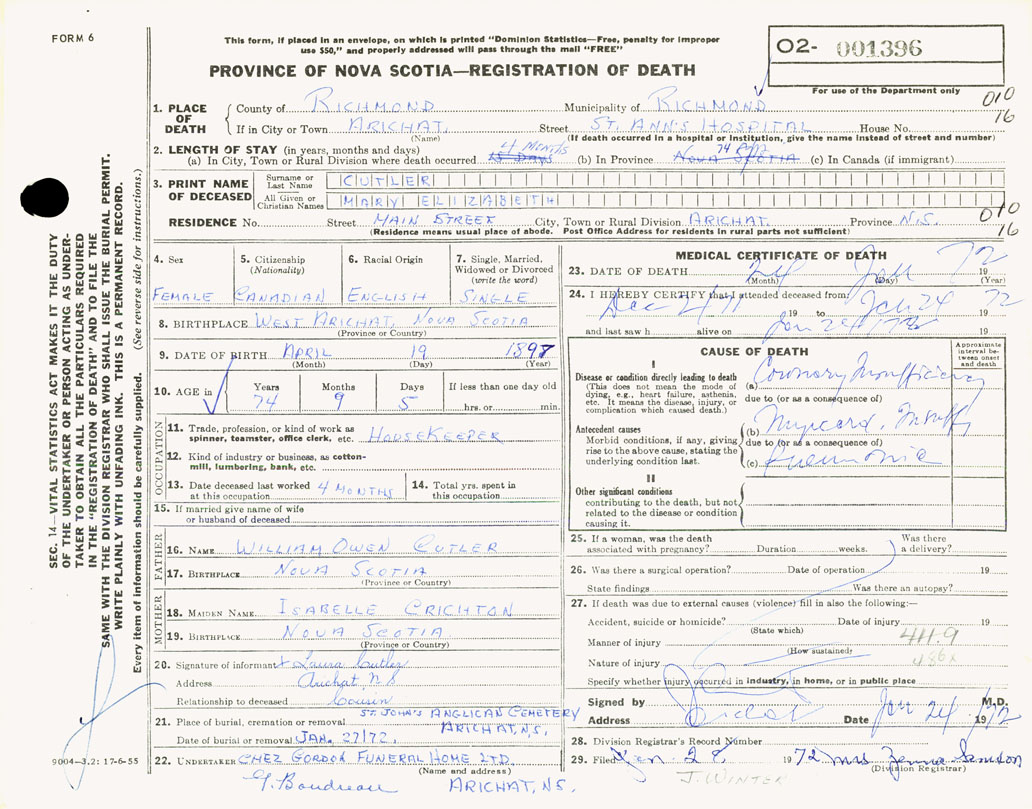 FORM 6
This form, if placed in an envelope, on which is printed "Dominion Statistics—Free, penalty for improper
use $50," and properly addressed will pass through the mail "FREE"
PROVINCE OF NOVA SCOTIA—REGISTRATION OF DEATH
O2- 001396
For use of the Department only
010
16
1. PLACE OF DEATH
County of RICHMOND Municipality of RICHMOND
If in City or Town ARICHAT. Street ST. ANN'S HOSPITAL House No.
(Name) (If death occurred in a hospital or institution, give the name instead of street and number)
2. LENGTH OF STAY (in years, months and days)
4 MONTHS 74
(a) In City, Town or Rural Division where death occurred 15 DAYS (b) In Province NOVA SCOTIA (c) In Canada (if immigrant)
3. PRINT NAME OF DECEASED
Surname or Last Name CUTLER
All Given or Christian Names MARY ELIZABETH
010
16
RESIDENCE No. Street MAIN STREET City, Town or Rural Division ARICHAT. Province N.S.
(Residence means usual place of abode. Post Office Address for residents in rural parts not sufficient)
4. Sex
FEMALE
5. Citizenship (Nationality)
CANADIAN
6. Racial Origin
ENGLISH
7. Single, Married, Widowed or Divorced (write the word)
SINGLE
8. BIRTHPLACE WEST ARICHAT, NOVA SCOTIA
(Province or Country)
9. DATE OF BIRTH APRIL 19 1897
(Month) (Day) (Year)
10. AGE in
Years Months Days If less than one day old
74 9 5 hrs. or min.
OCCUPATION
11. Trade, profession, or kind of work as
spinner, teamster, office clerk, etc. HOUSEKEEPER
12. Kind of industry or business, as cotton-
mill, lumbering, bank, etc.
13. Date deceased last worked at this occupation 4 MONTHS
14. Total yrs. spent in this occupation
15. If married give name of wife
or husband of deceased
FATHER
16. NAME WILLIAM OWEN CUTLER
17. BIRTHPLACE NOVA SCOTIA
(Province or Country)
MOTHER
18. MAIDEN NAME ISABELLE CRICHTON
19. BIRTHPLACE NOVA SCOTIA
(Province or Country)
20. Signature of informant Laura Cutler
Address Arichat, N.S
Relationship to deceased Cousin
21. Place of burial, cremation or removal ST. JOHN'S ANGLICAN CEMETERY
ARICHAT, N.S.
Date of burial or removal JAN. 27/72
22. UNDERTAKER CHEZ GORDON FUNERAL HOME LTD.
(Name and address)
G. Boudreau ARICHAT, N.S.
MEDICAL CERTIFICATE OF DEATH
23. DATE OF DEATH 24 Jan 72 19
(Month) (Day) (Year)
24. I HEREBY CERTIFY that I attended deceased from:
Dec 4/71 19 to Jan 24 72 19
and last saw h alive on Jan 24 1972 19
CAUSE OF DEATH
Approximate interval between onset and death
I
Disease or condition directly leading to death
(This does not mean the mode of
dying, e.g., heart failure, asthenia,
etc. It means the disease, injury, or
complication which caused death.)
(a) Coronary Insufficiency
due to (or as a consequence of)
Antecedent causes
Morbid conditions, if any, giving
rise to the above cause, stating the
underlying condition last.
(b) Myocard. Insuff
due to (or as a consequence of)
(c) Pneumonia
II
Other significant conditions
contributing to the death, but not
related to the disease or condition
causing it.
25. If a woman, was the death Was there
associated with pregnancy? Duration weeks. a delivery?
26. Was there a surgical operation? Date of operation 19
State findings Was there an autopsy?
27. If death was due to external causes (violence) fill in also the following:—
Accident, suicide or homicide? Date of injury 19
(State which)
Manner of injury 411.9
(How sustained)
Nature of injury 486x
Specify whether injury occurred in industry, in home, or in public place
Signed by M.D.
Address Date Jan 24 1972
28. Division Registrar's Record Number
29. Filed Jan. 28, 1972 Mrs Samson
(Division Registrar)
J. WINTER
SEC. 14—VITAL STATISTICS ACT MAKES IT THE DUTY
OF THE UNDERTAKER OR PERSON ACTING AS UNDER-
TAKER TO OBTAIN ALL THE PARTICULARS REQUIRED
IN THE "REGISTRATION OF DEATH" AND TO FILE THE
SAME WITH THE DIVISION REGISTRAR WHO SHALL ISSUE THE BURIAL PERMIT.
WRITE PLAINLY WITH UNFADING INK. THIS IS A PERMANENT RECORD.
Every item of information should be carefully supplied. (See reverse side for instructions.)
9004-3.2: 17-6-55